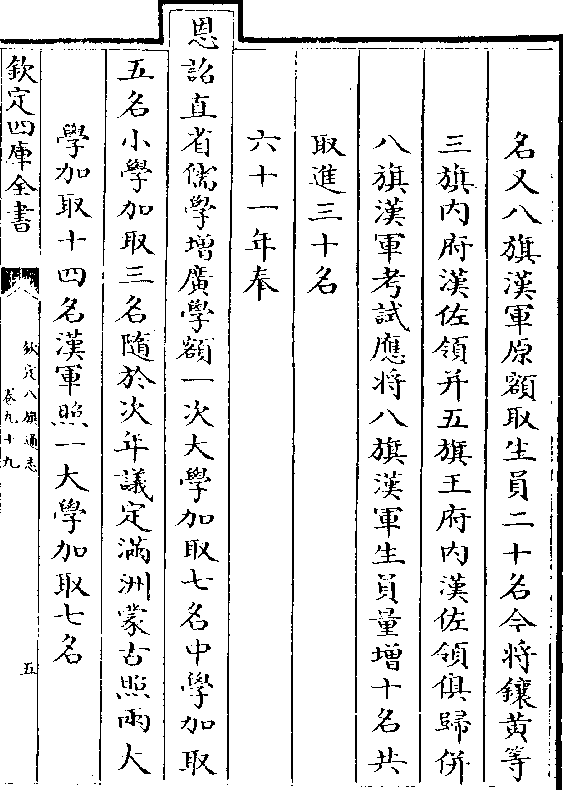 名又八旗漢軍原額取生員二十名今将鑲黄等
三旗内府漢佐領并五旗王府内漢佐領俱歸併
八旗漢軍考試應将八旗漢軍生員量增十名共
取進三十名
六十一年奉
恩詔直省儒學增廣學額一次大學加取七名中學加取
五名小學加取三名隨於次年議定滿洲蒙古照兩大
學加取十四名漢軍照一大學加取七名
欽定四庫全書
欽定八旗通志
卷九十九
五